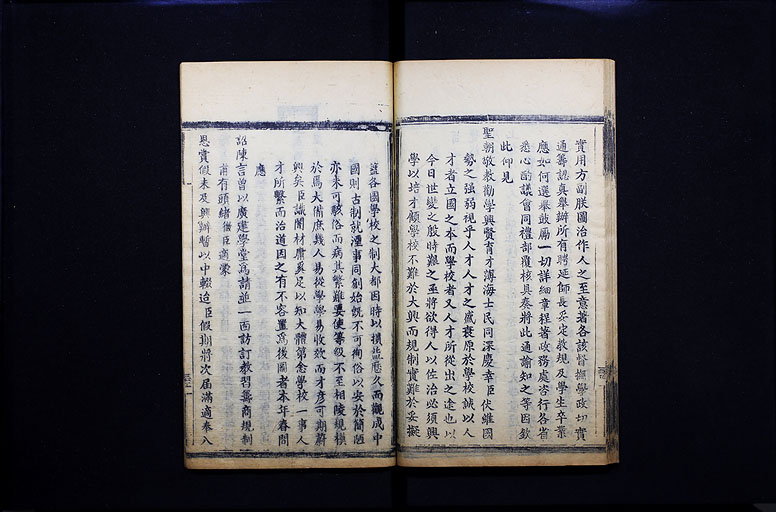 實用方副朕圖治作人之至意著各該督撫學政切實
通籌認真舉辦所有聘延師長妥定教規及學生卒業
應如何選舉鼓勵一切詳細章程著政務處咨行各省
悉心酌議會同禮部覆核具奏將此通諭知之等因欽
此仰見
聖朝敬教勸學興賢育才溥海士民同深慶幸臣伏維國
勢之強弱視乎人才人才之盛衰原於學校誠以人
才者立國之本而學校者又人才所從出之途也以
今日世變之殷時艱之亟將欲得人以佐治必須興
學以培才顧學校不難於大興而規制實難於妥擬
蓋各國學校之制大都因時以損益歷久而觀成中
國則古制就湮事同創始既不可徇俗以安於簡陋
亦未可駭俗而病其繁難要使等級不至相陵規模
於焉大備庶幾人易從學學易收效而才彥可期蔚
興矣臣識闇材庸奚足以知大體第念學校一事人
才所繫而治道因之有不容置為後圖者本年春間
應
詔陳言曾以廣建學堂為請並一面訪訂教習籌商規制
甫有頭緒徵臣適蒙
恩賞假未及興辦暫以中輟迨臣假期將次屆滿適奉八